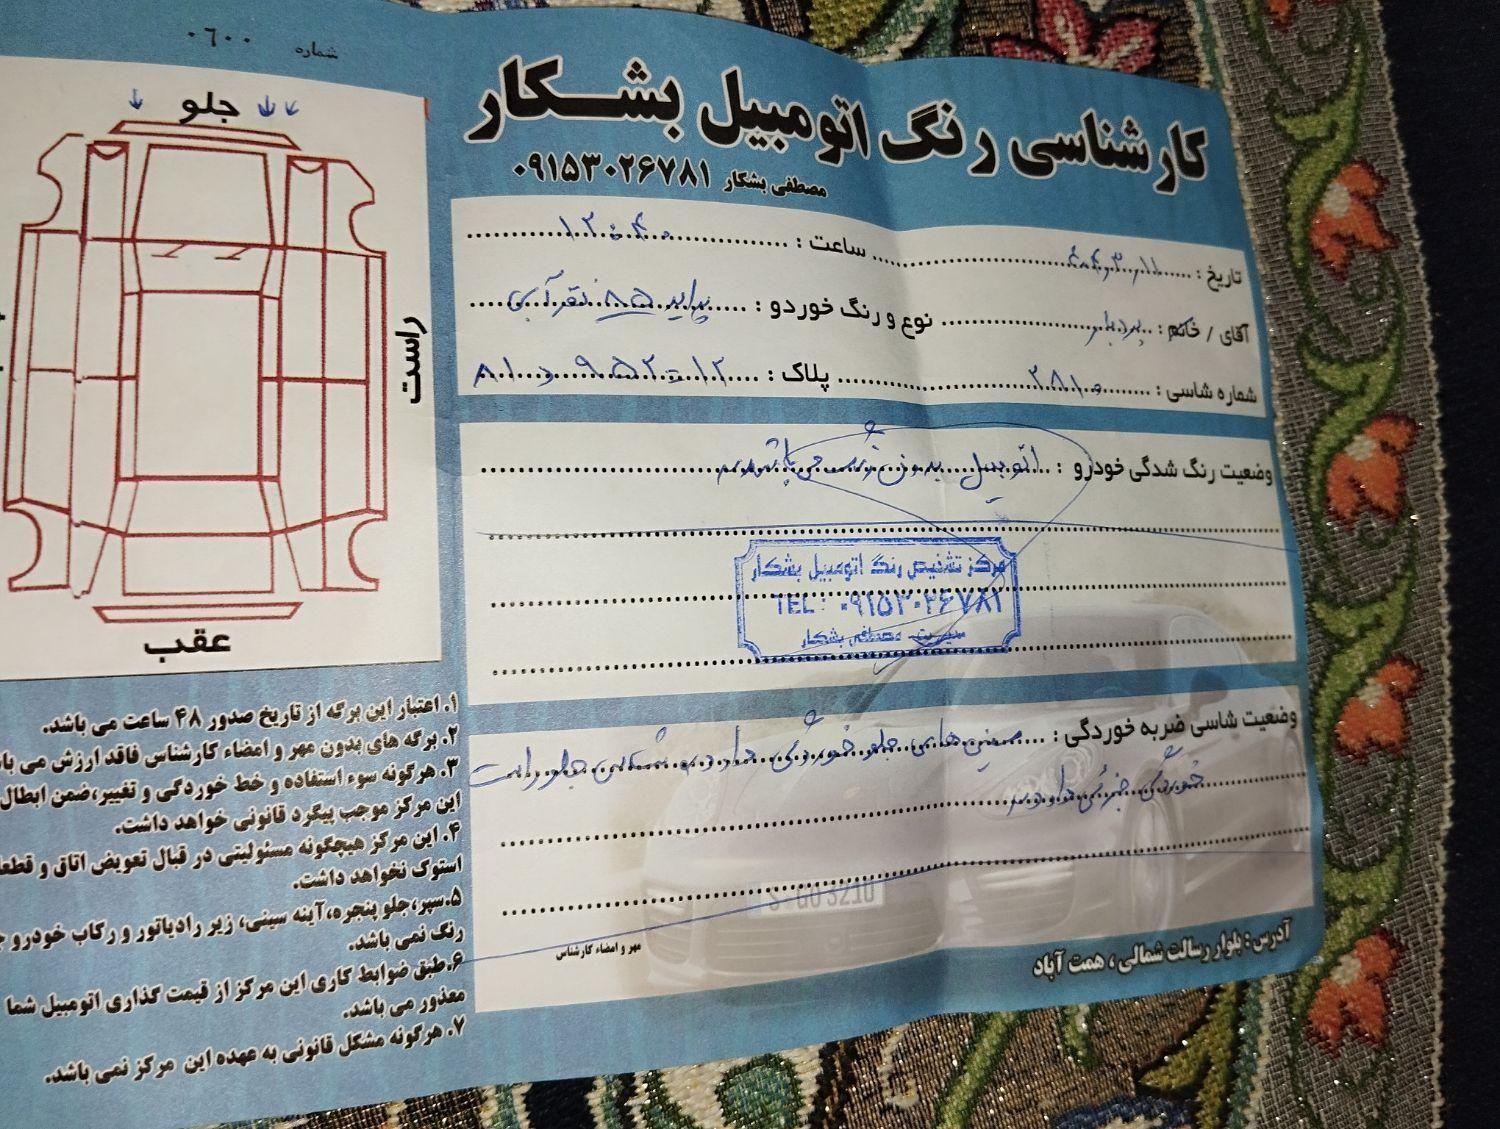 شماره ۰۶۰۰
کارشناسی رنگ اتومبیل بشکار
مصطفی بشکار ۰۹۱۵۳۰۲۶۷۸۱
تاریخ : ساعت : ۱۲:۴۰
آقای / خانم : بردبار نوع و رنگ خوردو : پراید ۸۵ نقرآبی
شماره شاسی : پلاک : ۱۲ - ۹۵۲ د ۸۱
وضعیت رنگ شدگی خودرو : اتومبیل بدون رنگ می باشد
مرکز تشخیص رنگ اتومبیل بشکار
TEL : ۰۹۱۵۳۰۲۶۷۸۱
مدیریت مصطفی بشکار
وضعیت شاسی ضربه خوردگی : سینی های جلو خوردگی دارد، شاسی جلو راست
خوردگی جزئی دارد
S·GO 3210
مهر و امضاء کارشناس
آدرس : بلوار رسالت شمالی ، همت آباد
جلو
راست
عقب
۱. اعتبار این برگه از تاریخ صدور ۴۸ ساعت می باشد.
۲. برگه های بدون مهر و امضاء کارشناس فاقد ارزش می
۳. هرگونه سوء استفاده و خط خوردگی و تغییر،ضمن ابطال
این مرکز موجب پیگرد قانونی خواهد داشت.
۴. این مرکز هیچگونه مسئولیتی در قبال تعویض اتاق و
استوک نخواهد داشت.
۵.سپر،جلو پنجره،آینه سینی، زیر رادیاتور و رکاب خودرو
رنگ نمی باشد.
۶.طبق ضوابط کاری این مرکز از قیمت گذاری اتومبیل شما
معذور می باشد.
۷. هرگونه مشکل قانونی به عهده این مرکز نمی باشد.